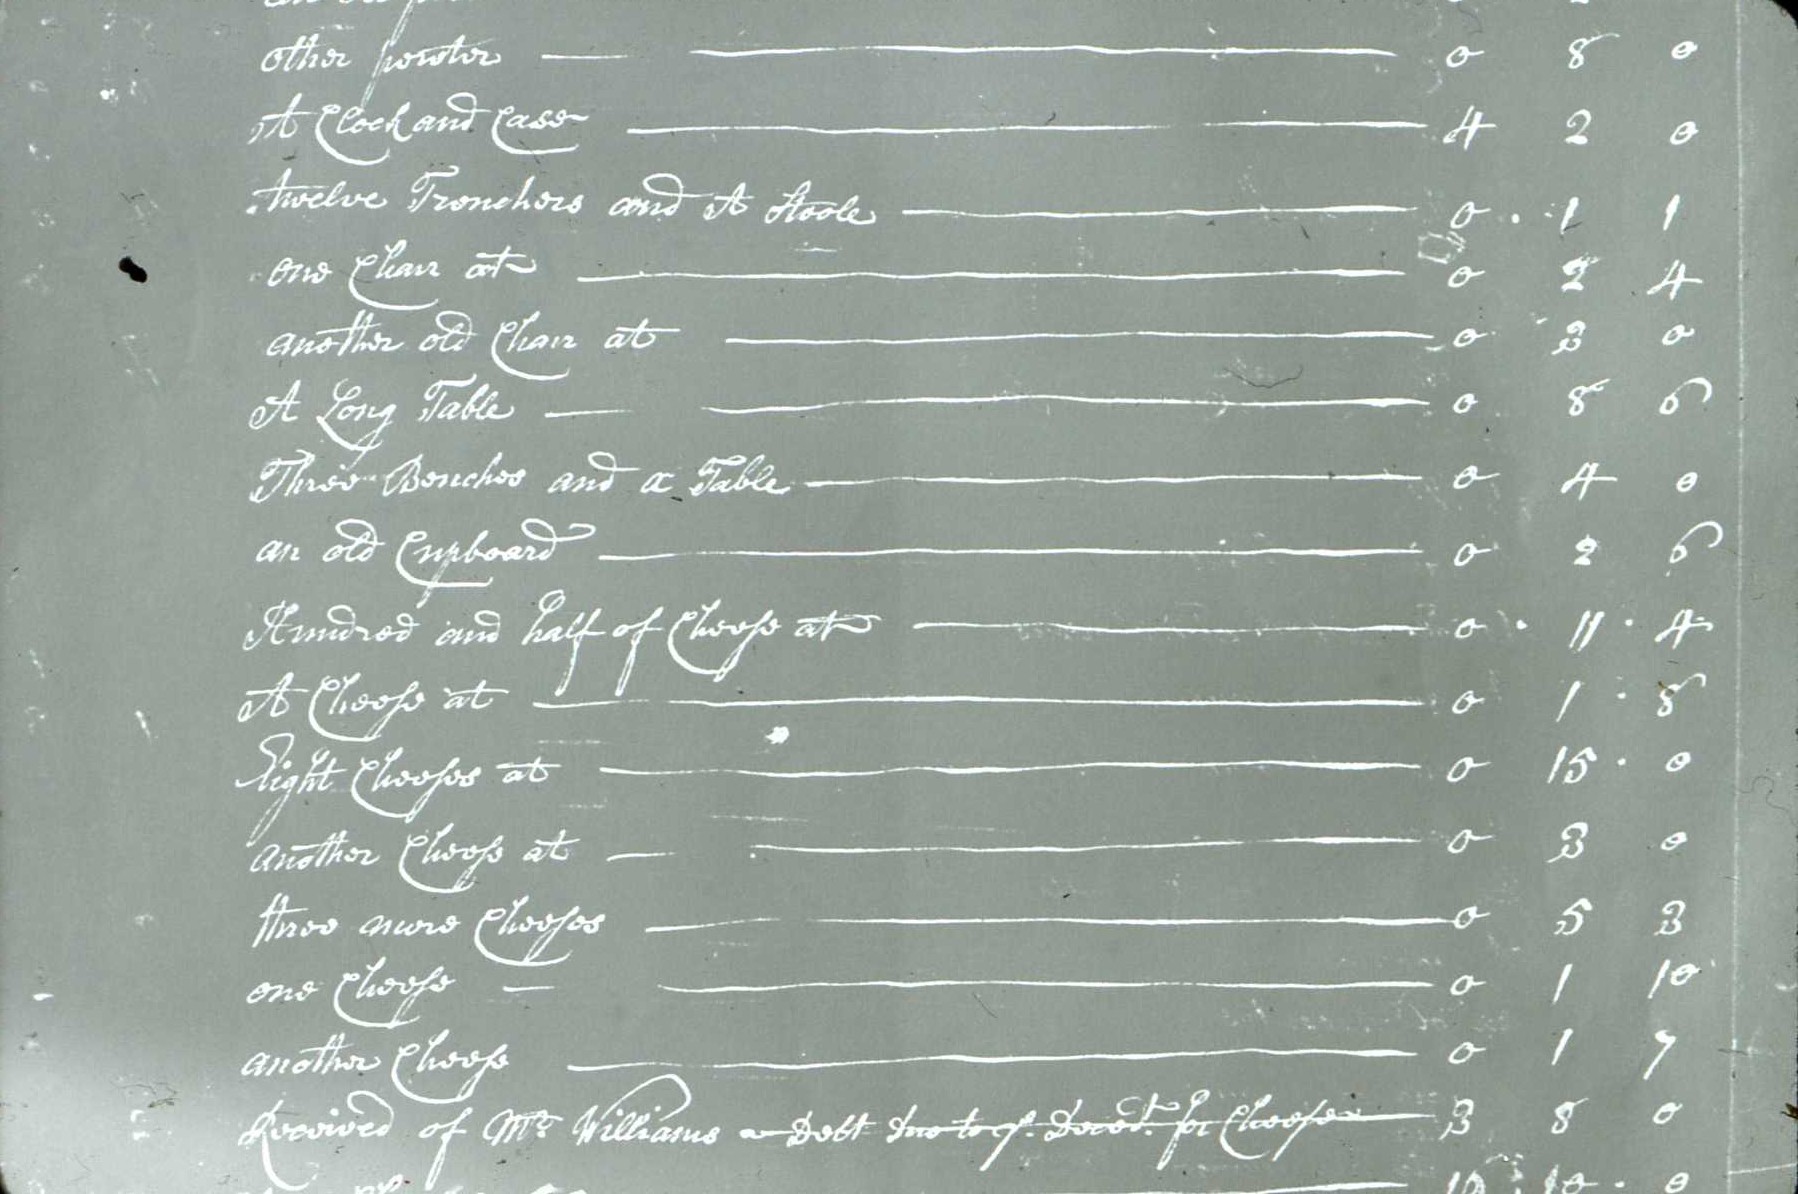 other pewter 0 8 0
A Clock and Case 4 2 0
twelve Trenchers and A Stoole 0 1 1
one Chair at 0 2 4
another old Chair at 0 3 0
A Long Table 0 8 6
Three Benches and a Table 0 4 0
an old Cupboard 0 2 6
Hundred and half of Cheese at 0 11 4
A Cheese at 0 1 8
Eight Cheeses at 0 15 0
another Cheese at 0 3 0
three more Cheeses 0 5 3
one Cheese 0 1 10
another Cheese 0 1 7
Received of Mr Williams a Debt due to ye. Deced. for Cheese 3 8 0